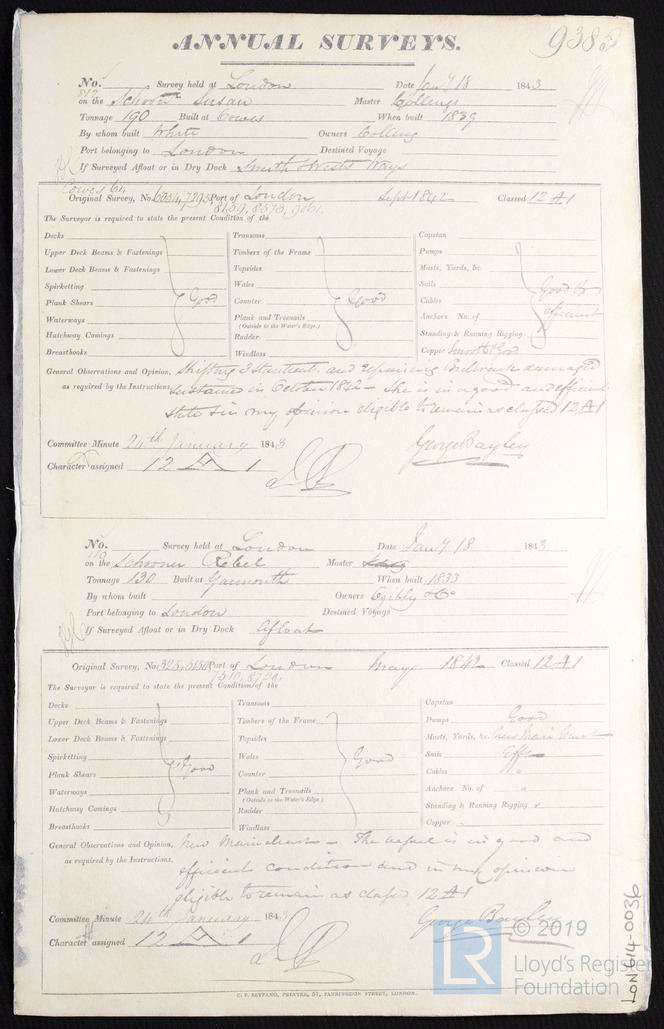 ANNUAL SURVEYS.
No. Survey held at London Date Jany 18 1843
on the Schoonr Susan Master Colling
Tonnage 190 Built at Cowes When built 1839
By whom built White Owners Colling
Port belonging to London Destined Voyage
If Surveyed Afloat or in Dry Dock Smith &
Cowes 61,
Original Survey, No. 6054, 7295 Port of London Sept 1842 Classed 12 A 1
8159, 8573, 9061
The Surveyor is required to state the present Condition of the
Decks Transoms Capstan
Upper Deck Beams & Fastenings Timbers of the Frame Pumps
Lower Deck Beams & Fastenings Topsides Masts, Yards, &c.
Spirketting Wales Sails Good &
Plank Shears Good Counter Good Cables efficient
Waterways Plank and Treenails Anchors No. of
(Outside to the Water's Edge.)
Hatchway Comings Rudder Standing & Running Rigging
Breasthooks Windlass Copper Good
General Observations and Opinion, Shifting 3 Stantions and repairing Bulwark damaged
as required by the Instructions, sustained in October 1842 - She is in a good and efficient
state in my opinion eligible to remain as classed 12 A 1
Committee Minute 24th January 1843 George Bayley
Character assigned 12 A 1
No. Survey held at London Date Jany 18 1843
on the Schooner Rebel Master
Tonnage 130 Built at Yarmouth When built 1833
By whom built Owners & Co
Port belonging to London Destined Voyage
If Surveyed Afloat or in Dry Dock Afloat
Original Survey, No. 325, Port of London May 1842 Classed 12 A 1
The Surveyor is required to state the present Condition of the
Decks Transoms Capstan
Upper Deck Beams & Fastenings Timbers of the Frame Pumps Good
Lower Deck Beams & Fastenings Topsides Masts, Yards, &c. New Main Mast
Spirketting Wales Sails Efft
Plank Shears Good Counter Good Cables "
Waterways Plank and Treenails Anchors No. of "
(Outside to the Water's Edge)
Hatchway Comings Rudder Standing & Running Rigging "
Breasthooks Windlass Copper
General Observations and Opinion, New Mainmast - The vessel is in good and
as required by the Instructions, efficient condition and in my opinion
eligible to remain as classed 12 A 1
Committee Minute 24th January 1843 George Bayley
Character assigned 12 A 1
C. F. SEYFANG, PRINTER, 57, FARRINGDON STREET, LONDON.
LON614-0036
LR © 2019
Lloyd's Register
Foundation